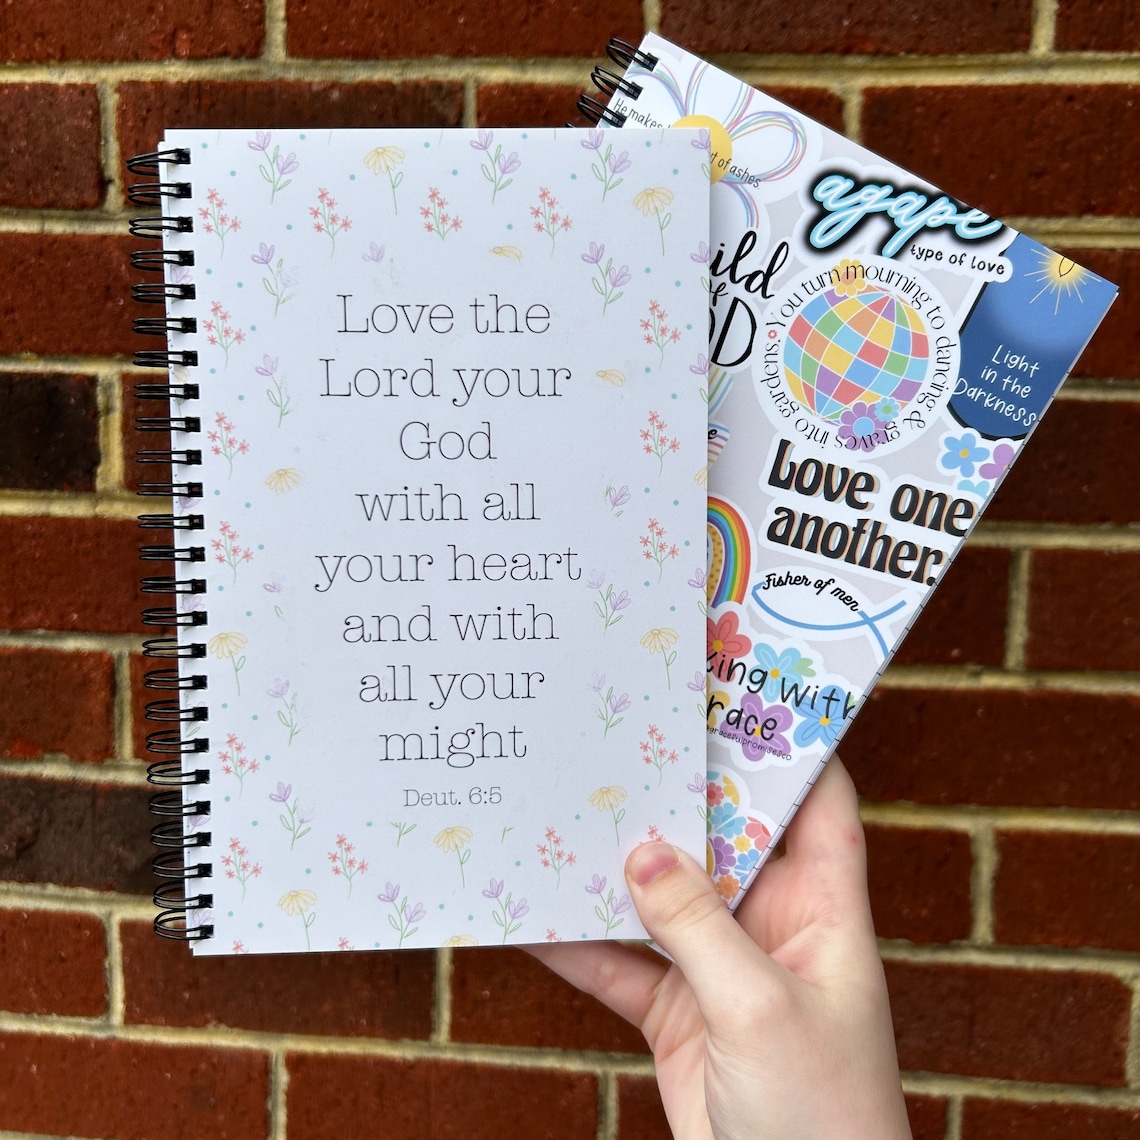 Love the
Lord your
God
with all
your heart
and with
all your
might
Deut. 6:5
He makes
of ashes.
agape
type of love
of
You turn mourning to dancing & graves into gardens.
Light
in the
Darkness
Love one
another.
Fisher of men
with
gracefulpromisesco